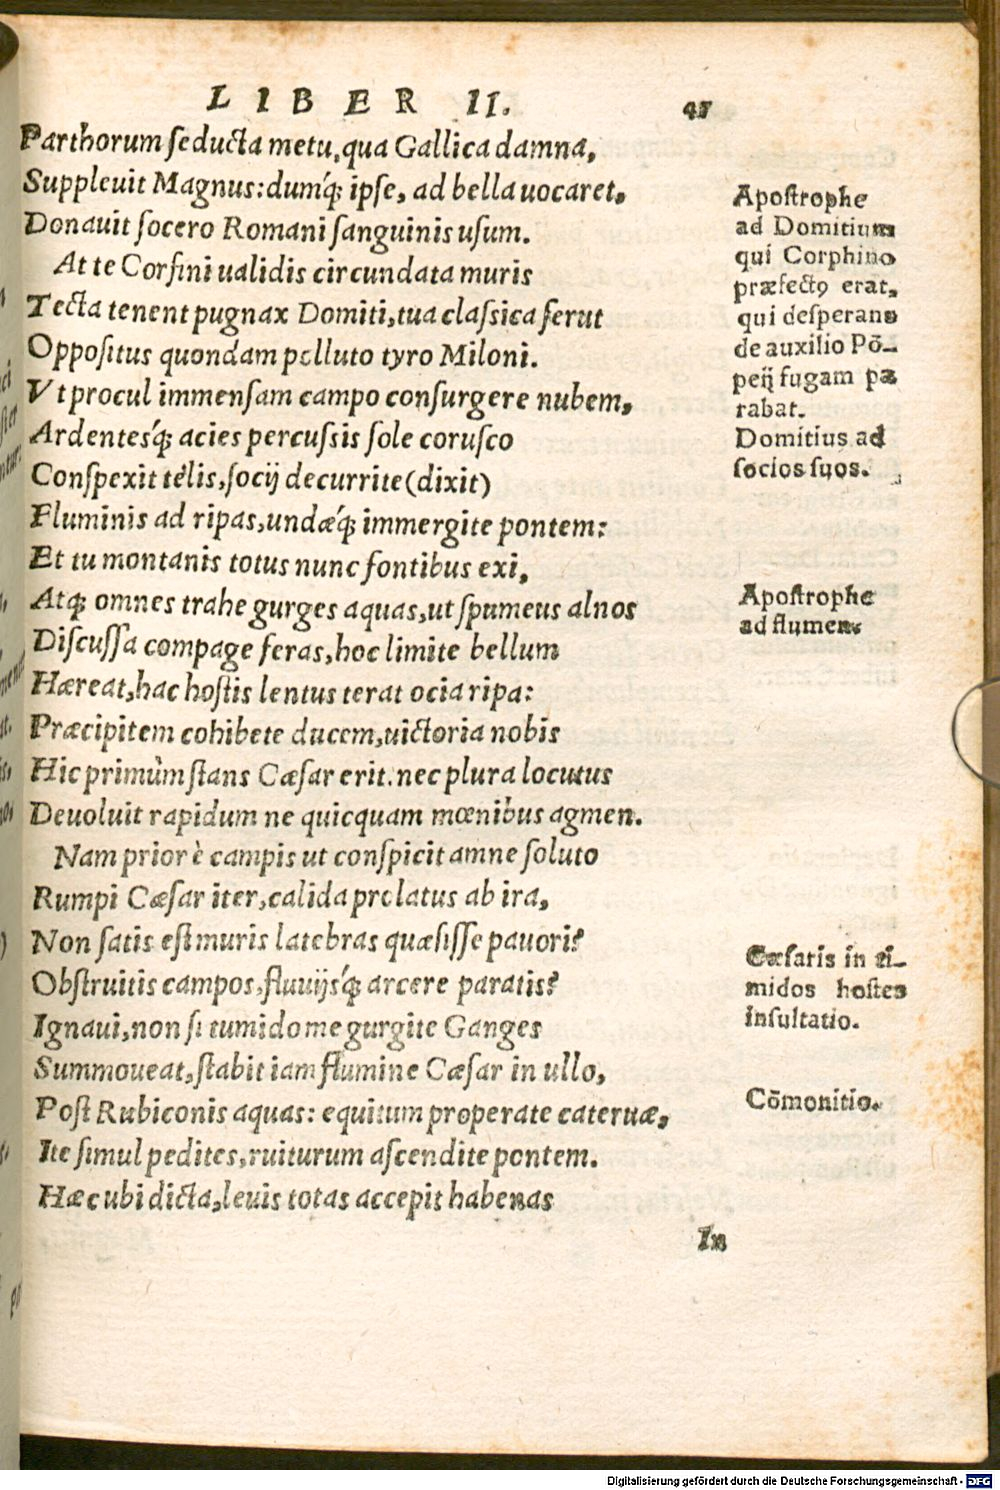 LIBER II. 47
Parthorum seducta metu, qua Gallica damna,
Supplevit Magnus: dumq́; ipse, ad bella uocaret,
Donauit socero Romani sanguinis usum.
At te Corfini ualidis circundata muris
Tecta tenent pugnax Domiti, tua classica serut
Oppositus quondam polluto tyro Miloni.
Vt procul immensam campo consurgere nubem,
Ardentesq́; acies percussis sole corusco
Conspexit telis, socij decurrite (dixit)
Fluminis ad ripas, undæq́; immergite pontem:
Et tu montanis totus nunc fontibus exi,
Atq; omnes trahe gurges aquas, ut spumeus alnos
Discussa compage feras, hoc limite bellum
Hæreat, hac hostis lentus terat ocia ripa:
Præcipitem cohibete ducem, uictoria nobis
Hic primùm stans Cæsar erit. nec plura locutus
Deuoluit rapidum ne quicquam mœnibus agmen.
Nam prior è campis ut conspicit amne soluto
Rumpi Cæsar iter, calida prolatus ab ira,
Non satis est muris latebras quæsisse pauori?
Obstruitis campos, fluuijsq́; arcere paratis?
Ignaui, non si tumido me gurgite Ganges
Summoueat, stabit iam flumine Cæsar in ullo,
Post Rubiconis aquas: equitum properate cateruæ,
Ite simul pedites, ruiturum ascendite pontem.
Hæc ubi dicta, leuis totas accepit habenas
In
Apostrophe
ad Domitium
qui Corphino
præfectꝰ erat,
qui desperans
de auxilio Põ-
peij fugam pa
rabat.
Domitius ad
socios suos.
Apostrophe
ad flumen.
Cæsaris in ti-
midos hostes
insultatio.
Cõmonitio.
Digitalisierung gefördert durch die Deutsche Forschungsgemeinschaft - DFG